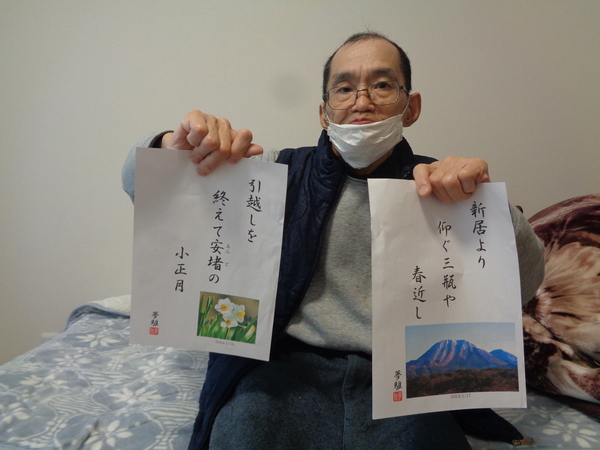 引越しを
終えて安堵の
あんど
小正月
夢騒
新居より
仰ぐ三瓶や
春近し